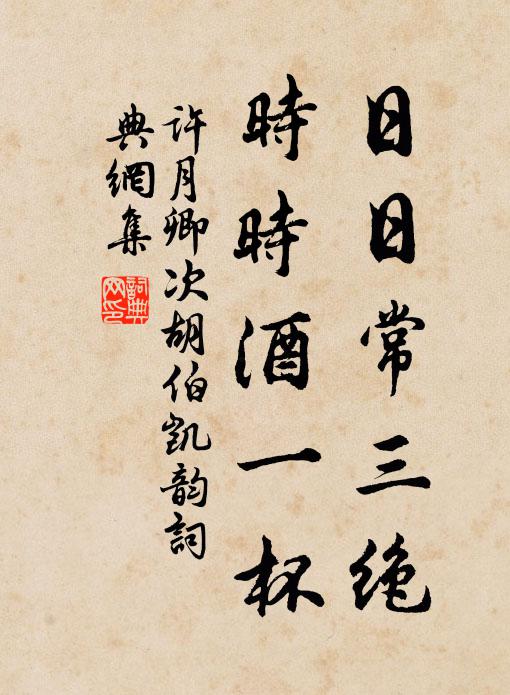 日日常三绝
時時酒一杯
许月卿次胡伯凯韵詞
典網集
詞典网印